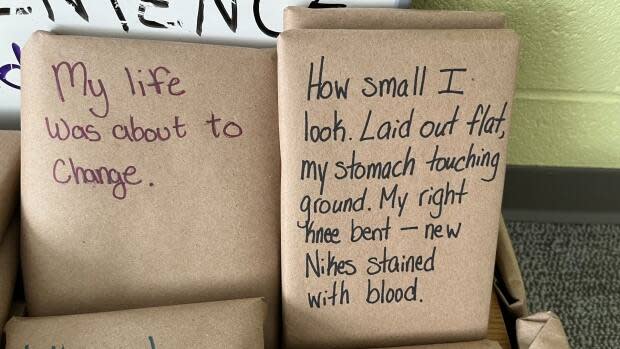 My life
was about to
Change.
How small I
look. Laid out flat,
my stomach touching
ground. My right
knee bent – new
Nikes stained
with blood.